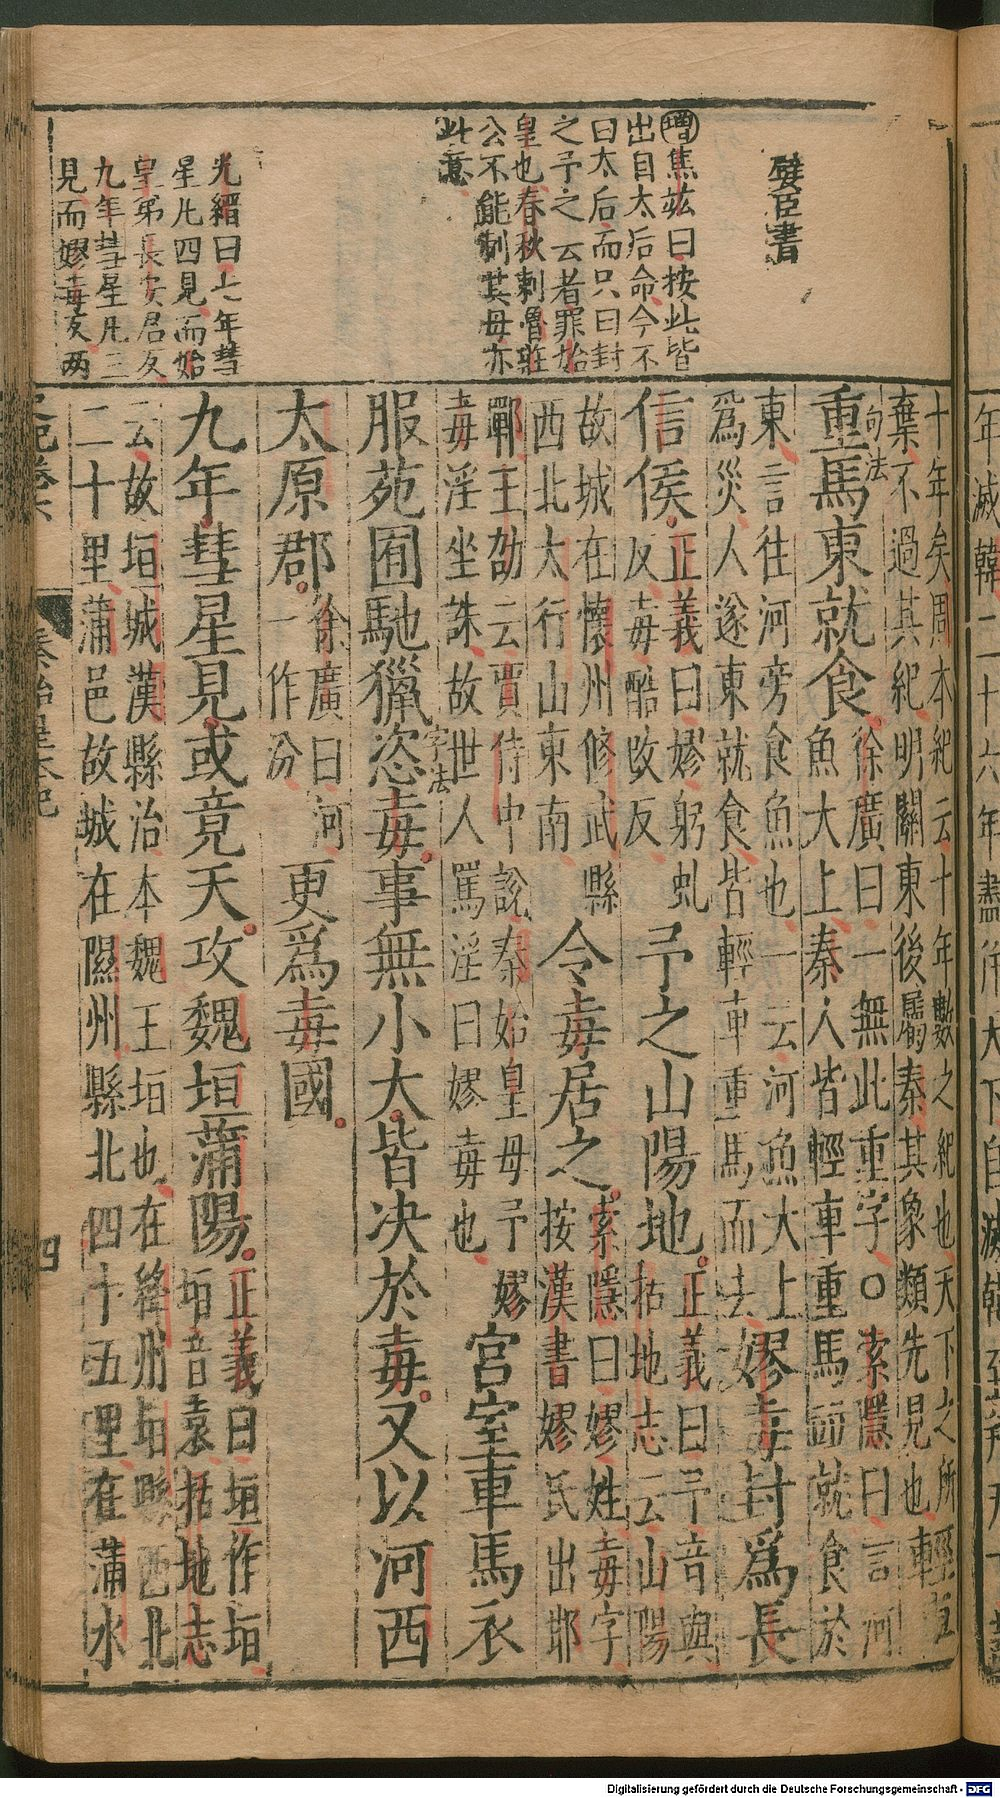 嬖臣書
增焦竑曰按此皆
出自太后命今不
曰太后而只曰封
之予之云者罪始
皇也春秋刺魯莊
公不能制其母亦
此意
光縉曰上年彗
星凡四見而始
皇弟長安君反
九年彗星凡三
見而嫪毐反两
十年矣周本紀云十年數之紀也天下之所
棄不過其紀明關東後屬秦其象類先見也
輕車
重馬東就食
句法
徐廣曰一無此重字○索隱曰言河
魚大上秦人皆輕車重馬而就食於
東言往河旁食魚也一云河魚大上
爲災人遂東就食皆輕車重馬而去
嫪毐封爲長
信侯
正義曰嫪躬虬
反毐酷改反
予之山陽地
正義曰予音與
括地志云山陽
故城在懷州修武縣
西北太行山東南
令毐居之
索隱曰嫪姓毐字
按漢書嫪氏出邯
鄲王劭云賈侍中說秦始皇母予嫪
毐淫坐誅故世人罵淫曰嫪毐也
宮室車馬衣
服苑囿馳獵恣毐事無小大皆决於毐又以河西
字法
太原郡
徐廣曰河
一作汾
更爲毐國
九年彗星見或竟天攻魏垣蒲陽
正義曰垣作垣
垣音袁括地志
云故垣城漢縣治本魏王垣也在絳州垣縣西北
二十里蒲邑故城在隰州縣北四十五里在蒲水
秦始皇本紀
四
Digitalisierung gefördert durch die Deutsche Forschungsgemeinschaft - DFG